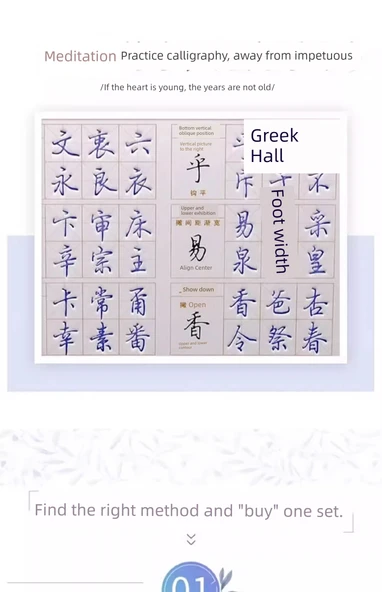 Meditation Practice calligraphy, away from impetuous
/If the heart is young, the years are not old/
Bottom vertical
oblique position
Vertical picture
to the right
Greek
Hall
文 衷 六
乎
永 良 衣
Foot width
Upper and
lower exhibition
卞 审 床
易
易
采
辛 宗 主
Align Center
泉
皇
Show down
Open
卡 常 甬
香
香 爸 杏
幸 素 番
令 祭 春
Find the right method and "buy" one set.
01